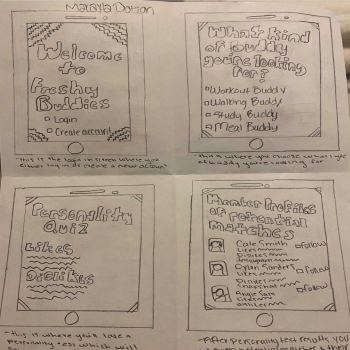 Welcome
to
Freshy
Buddies
Login
Create account
-this is the login screen where you
either log in or create a new account
What kind
of buddy
you're looking
for?
Workout Buddy
Walking Buddy
Study Buddy
Meal Buddy
-this is where you choose what type
of buddy you're looking for
Personality
Quiz
Likes
Dislikes
-this is where you'll take a
personality test which will
Member Profiles
of potential
matches
Cate Smith
Likes
Dislikes
Instagram
Follow
Dylan Sanders
Likes
Dislikes
Snapchat
Follow
Likes
Follow
-After personality test results you